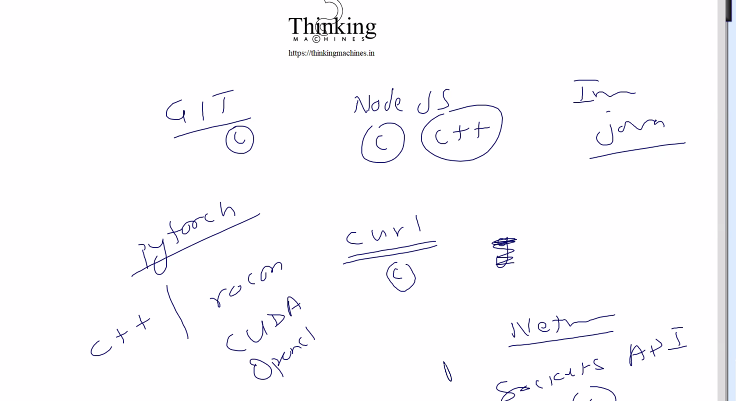 Thinking
MACHINES
https://thinkingmachines.in
GIT
C
Node JS
C C++
java
Pytorch
C++
rocm
CUDA
Opencl
curl
C
Sockets API